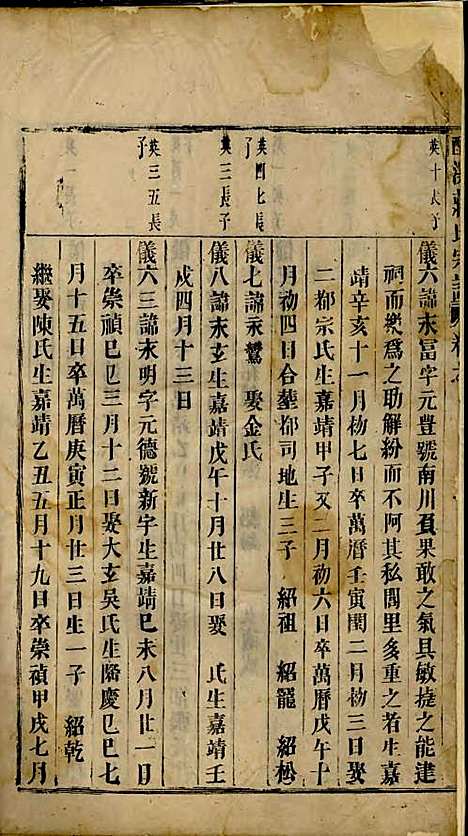 氏宗譜卷之
英十長子
儀六諱永富字元豐號南川負果敢之氣具敏捷之能建
祠而樂為之助解紛而不阿其私閭里多重之者生嘉
靖辛亥十一月初七日卒萬曆壬寅閏二月初三日娶
二都宗氏生嘉靖甲子又二月初六日卒萬曆戊午十
月初四日合塟都司地生三子 紹祖 紹龍 紹松
英四七長子
儀七諱永鸞 娶金氏
英三長子
儀八諱永玄生嘉靖戊午十月廿八日娶 氏生嘉靖壬
戌四月十三日
英三五長子
儀六三諱永明字元德號新宇生嘉靖已未八月廿一日
卒崇禎已巳三月十二日娶大玄吳氏生隆慶已巳七
月十五日卒萬曆庚寅正月廿三日生一子 紹乾
繼娶陳氏生嘉靖乙丑五月十九日卒崇禎甲戌七月